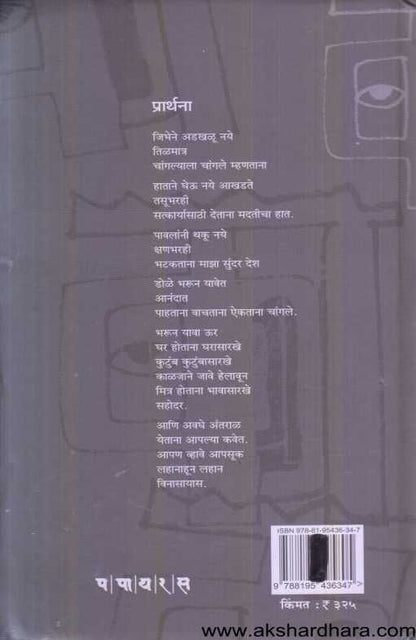 प्रार्थना
जिभेने अडखळू नये
तिळमात्र
चांगल्याला चांगले म्हणताना
हाताने घेऊ नये आखडते
तसूभरही
सत्कार्यासाठी देताना मदतीचा हात.
पावलांनी थकू नये
क्षणभरही
भटकताना माझा सुंदर देश
डोळे भरून यावेत
आनंदात
पाहताना वाचताना ऐकताना चांगले.
भरून यावा ऊर
घर होताना घरासारखे
कुटुंब कुटुंबासारखे
काळजाने जावे हेलावून
मित्र होताना भावासारखे
सहोदर.
आणि अवघे अंतराळ
येताना आपल्या कवेत.
आपण व्हावे आपसूक
लहानाहून लहान
विनासायास.
प|पा|य|र|स
ISBN 978-81-95436-34-7
9 788195 436347 >
किंमत : ₹ ३२५
www.akshardhara.com